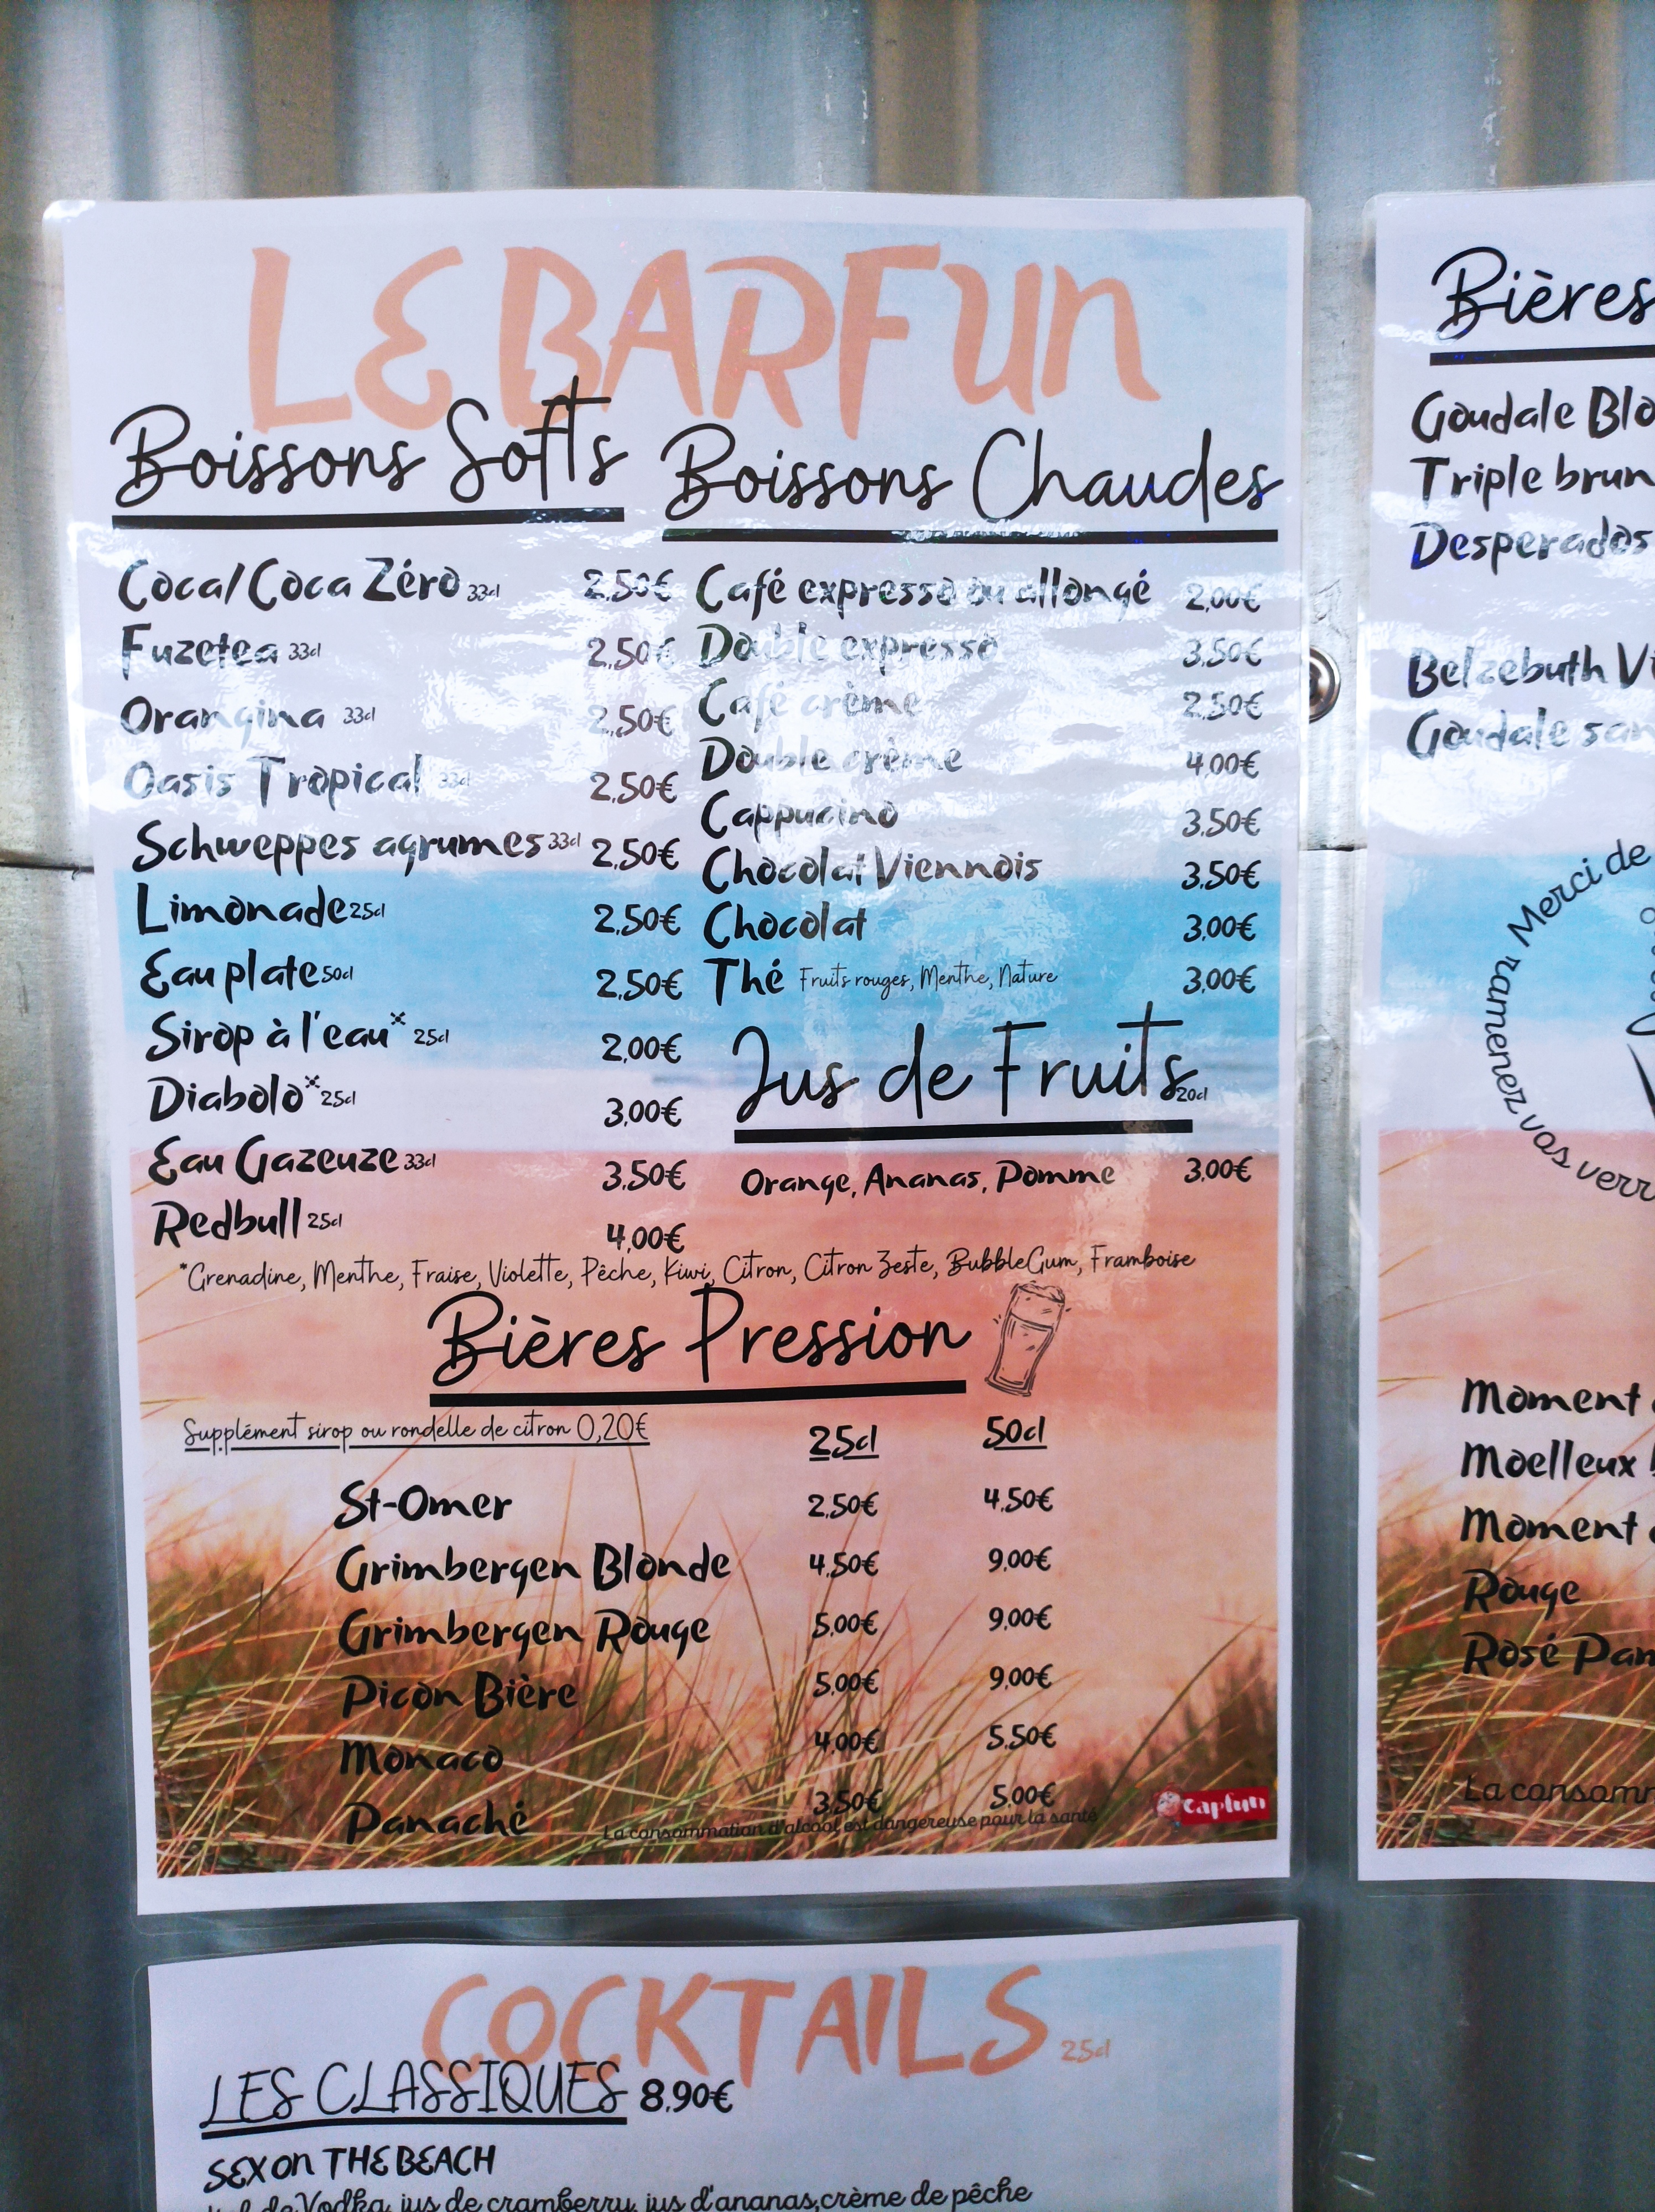 LE BARFUN
Boissons Softs
Coca/Coca Zéro 33cl 2,50€
Fuzetea 33cl 2,50€
Orangina 33cl 2,50€
Oasis Tropical 33cl 2,50€
Schweppes agrumes 33cl 2,50€
Limonade 25cl 2,50€
Eau plate 50cl 2,50€
Sirop à l'eau* 25cl 2,00€
Diabolo* 25cl 3,00€
Eau Gazeuze 33cl 3,50€
Redbull 25cl 4,00€
Boissons Chaudes
Café expresso ou allongé 2,00€
Double expresso 3,50€
Café crème 2,50€
Double crème 4,00€
Cappucino 3,50€
Chocolat Viennois 3,50€
Chocolat 3,00€
Thé Fruits rouges, Menthe, Nature 3,00€
Jus de Fruits 20cl
Orange, Ananas, Pomme 3,00€
*Grenadine, Menthe, Fraise, Violette, Pêche, Kiwi, Citron, Citron Zeste, BubbleGum, Framboise
Bières Pression
Supplément sirop ou rondelle de citron 0,20€ 25cl 50cl
St-Omer 2,50€ 4,50€
Grimbergen Blonde 4,50€ 9,00€
Grimbergen Rouge 5,00€ 9,00€
Picon Bière 5,00€ 9,00€
Monaco 4,00€ 5,50€
Panaché 3,50€ 5,00€
La consommation d'alcool est dangereuse pour la santé
capfun
COCKTAILS 25cl
LES CLASSIQUES 8,90€
SEX ON THE BEACH
de Vodka, jus de cramberry, jus d'ananas, crème de pêche
Bières
Goudale Blo
Triple brun
Desperados
Belzebuth Vi
Goudale san
Merci de
ramenez vos verr
Moment
Moelleux
Moment
Rouge
Rosé Pam
La consomm